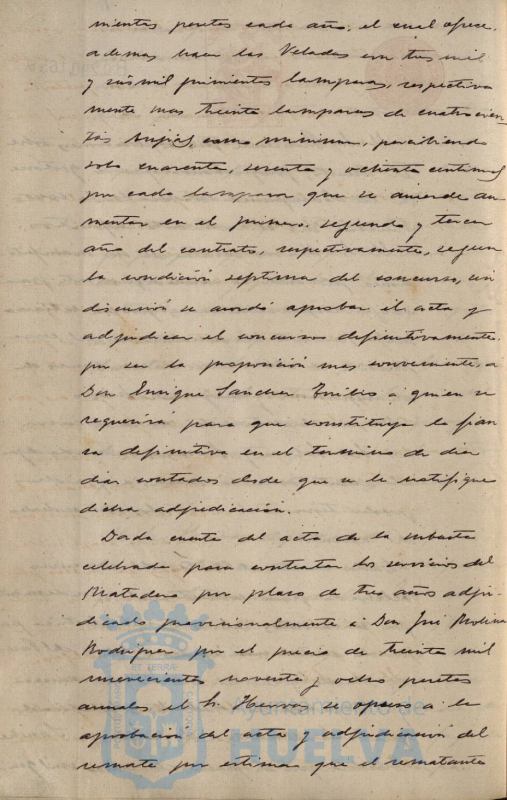 mientas pesetas cada año, el cual ofrece
ademas hacer las Veladas con tres mil
y seis mil quinientas lamparas, respectiva
mente mas treinta lamparas de cuatrocien-
tas bujias, como minimum, percibiendo
solo cuarenta, sesenta y ochenta centimos
por cada lampara que se acuerde au
mentar en el primero, segundo y tercer
año del contrato, respectivamente, segun
la condición septima del concurso, sin
discusión se acordó aprobar el acta y
adjudicar el concurso definitivamente
por ser la proposición mas conveniente, a
Don Enrique Sanchez Toribio a quien se
requerirá para que constituya la fian
za definitiva en el termino de diez
dias contados desde que se le notifique
dicha adjudicación.
Dada cuenta del acta de la subasta
celebrada para contratar los servicios del
Matadero por plazo de tres años adju-
dicado provisionalmente a Don José Molina
Rodriguez por el precio de treinta mil
novecientas noventa y ocho pesetas
anuales el Sr. Hervas se opuso a la
aprobación del acta y adjudicación del
remate por estimar que el rematante
Ayuntamiento de
HUELVA